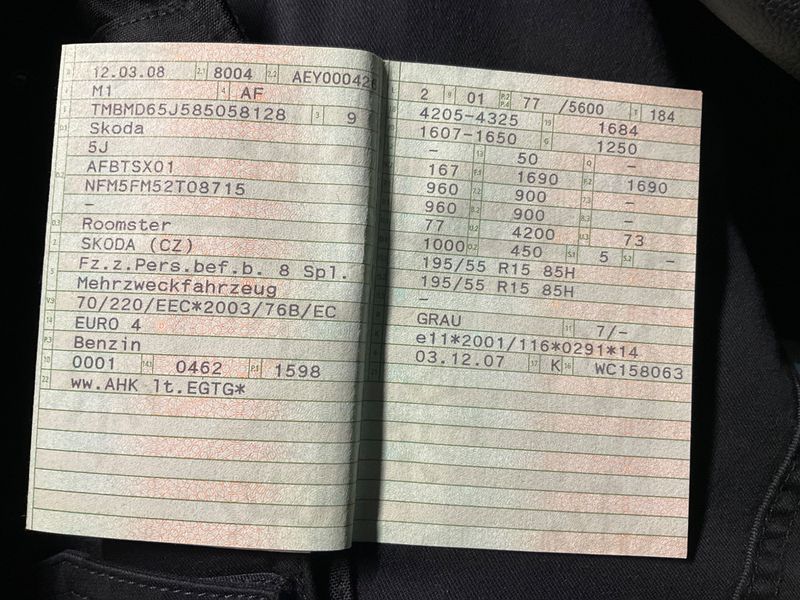 12.03.08 2.1 8004 2.2 AEY000426
M1 4 AF
TMBMD65J585058128 3 9
Skoda
5J
AFBTSX01
NFM5FM52T08715
–
Roomster
SKODA (CZ)
Fz.z.Pers.bef.b. 8 Spl.
Mehrzweckfahrzeug
70/220/EEC*2003/76B/EC
EURO 4
Benzin
0001 14.1 0462 P.1 1598
ww.AHK lt.EGTG*
2 9 01 P.2 P.4 77 /5600 T 184
4205-4325 19 1684
1607-1650 G 1250
– 13 50 Q –
167 F.1 1690 F.2 1690
960 7.2 900 7.3 –
960 8.2 900 8.3 –
77 U.2 4200 U.3 73
1000 O.2 450 S.1 5 S.2 –
195/55 R15 85H
195/55 R15 85H
–
GRAU 11 7/-
e11*2001/116*0291*14
03.12.07 17 K 16 WC158063